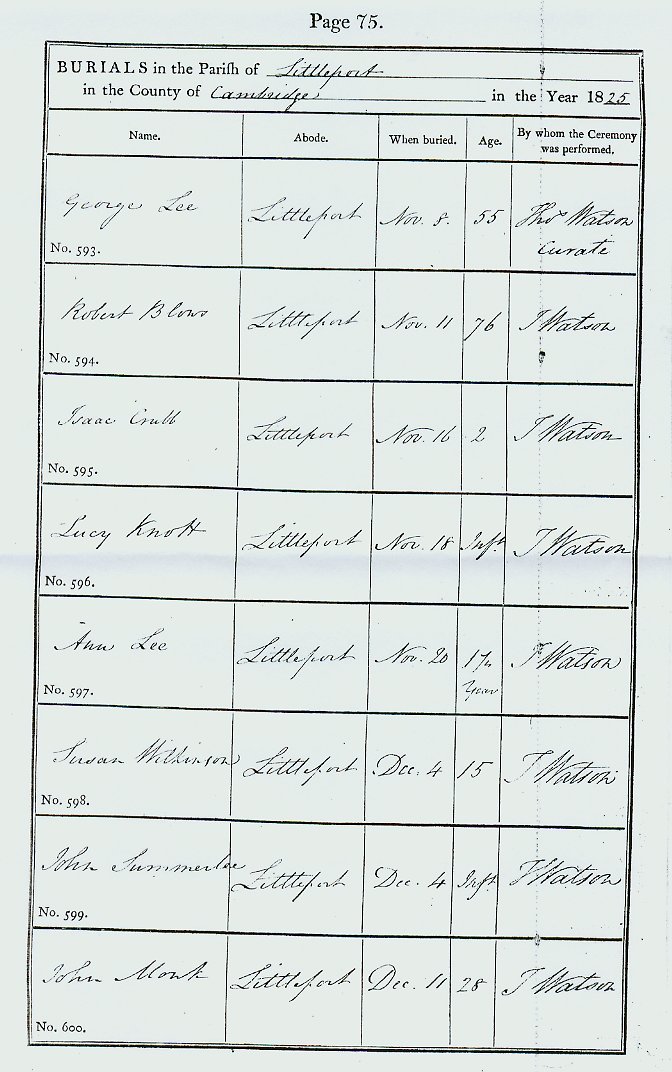 Page 75.
BURIALS in the Parish of Littleport
in the County of Cambridge in the Year 1825
Name. Abode. When buried. Age. By whom the Ceremony was performed.
George Lee Littleport Nov. 8. 55 Thos Watson
No. 593. Curate
Robert Blows Littleport Nov. 11 76 T Watson
No. 594.
Isaac Crabb Littleport Nov. 16 2 T Watson
No. 595.
Lucy Knott Littleport Nov. 18 Inft. T Watson
No. 596.
Ann Lee Littleport Nov. 20 T Watson
No. 597. Year
Susan Wilkinson Littleport Dec. 4 15 T Watson
No. 598.
John Summerlee Littleport Dec. 4 Inft. T Watson
No. 599.
John Monk Littleport Dec. 11 28 T Watson
No. 600.